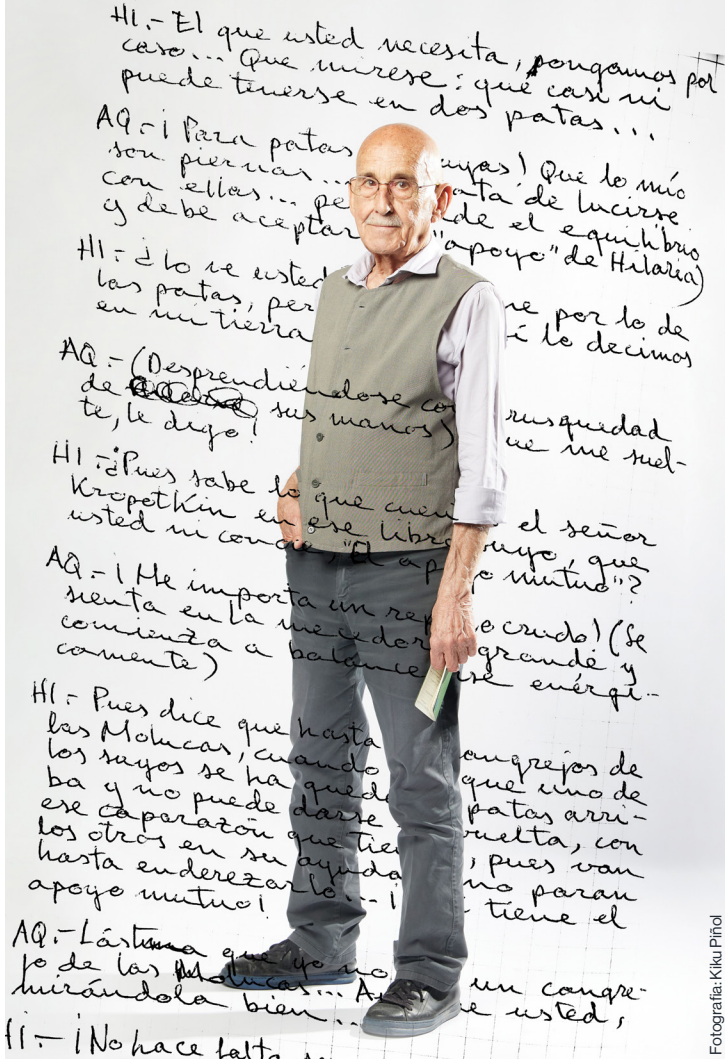 HI.- El que usted necesita, pongamos por
caso... Que mírese: que casi ni
puede tenerse en dos patas...
AQ.- ¡Para patas ayas! Que lo mío
son piernas... ata de lucirse
con ellas... pe de el equilibrio
y debe aceptar "apoyo" de Hilaria)
HI.- ¿Lo ve usted
las patas, per e por lo de
en mi tierra í lo decimos
AQ.- (Desprendiéndose co rusquedad
de sus manos) ue me suel-
te, le digo!
HI.- ¿Pues sabe lo que cuen el señor
Kropotkin en ese libro suyo, que
usted ni conoce, "El apoyo mutuo"?
AQ.- ¡Me importa un rep o crudo! (Se
sienta en la mecedora grande y
comienza a balancearse enérgi-
camente)
HI.- Pues dice que hasta cangrejos de
las Molucas, cuando que uno de
los suyos se ha queda patas arri-
ba y no puede darse vuelta, con
ese caparazón que tie , pues van
los otros en su ayuda no paran
hasta enderezarlo... ¡ tiene el
apoyo mutuo!
AQ.- Lástima que yo no un cangre-
jo de las Molucas... A e usted,
mirándola bien...
HI.- ¡No hace falta
Fotografía: Kiku Piñol